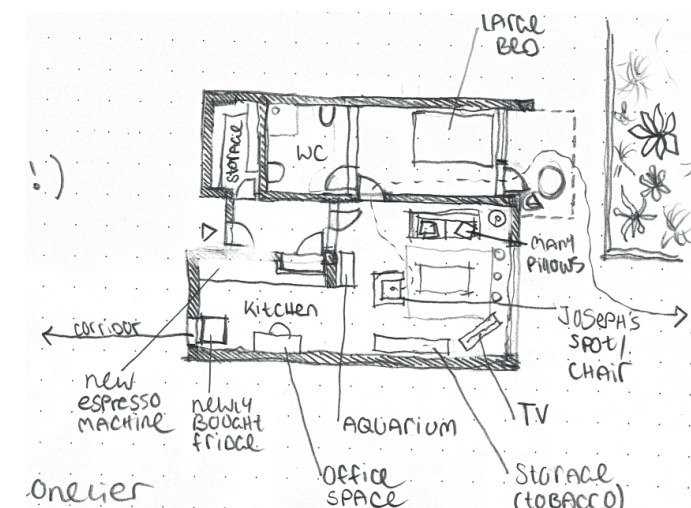 LARGE
BED
STORAGE
WC
:)
MANY
PILLOWS
Kitchen
JOSEPH'S
SPOT/
CHAIR
corridor
new
espresso
MACHINE
newly
BOUGHT
fridge
AQUARIUM
TV
Office
SPACE
Storage
(TOBACCO)
onelier